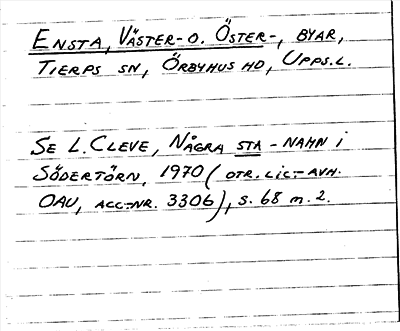 ENSTA, VÄSTER- O. ÖSTER-, BYAR,
TIERPS SN, ÖRBYHUS HD, UPPS.L.
SE L. CLEVE, NÅGRA STA-NAMN I
SÖDERTÖRN, 1970 (OTR. LIC.-AVH.
OAU, ACC-NR. 3306), S. 68 M. 2.